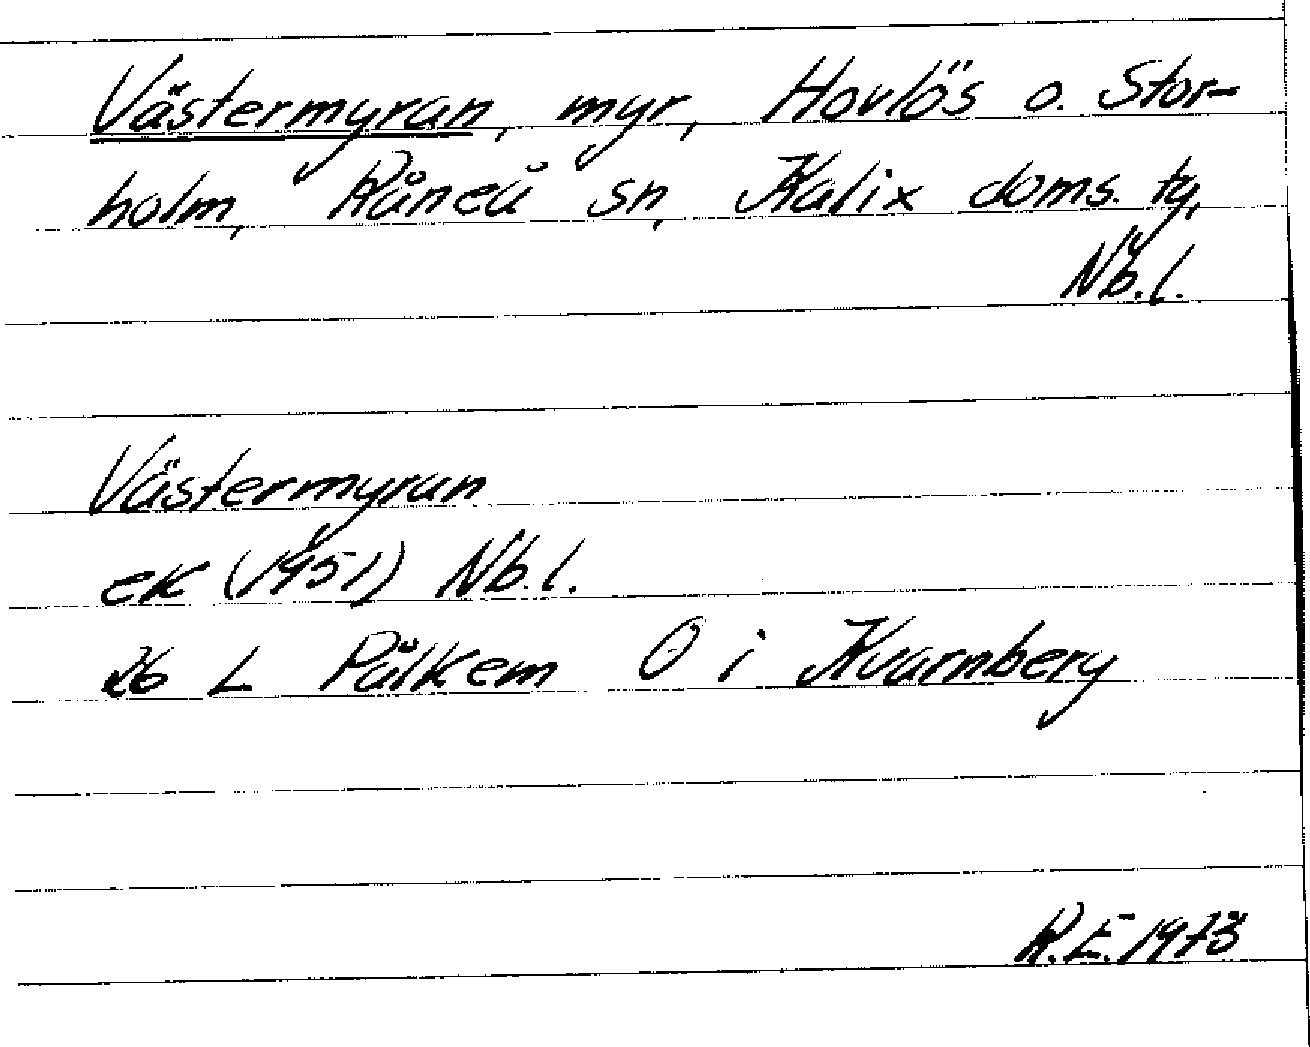 Västermyran, myr, Hovlös o. Stor-
holm, Råneå sn, Kalix doms. tg,
Nb.l.
Västermyran
ek (1951) Nb.l.
26 L Pålkem O i Kvarnberg
R.E. 1973